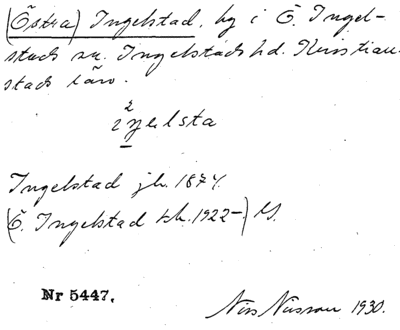 (Östra) Ingelstad, by i Ö. Ingel-
stads sn. Ingelstads hd. Kristian-
stads län.
Ingelstad jb. 1874.
(Ö. Ingelstad tk. 1922–) M.
Nr 5447.
Nils 1930.